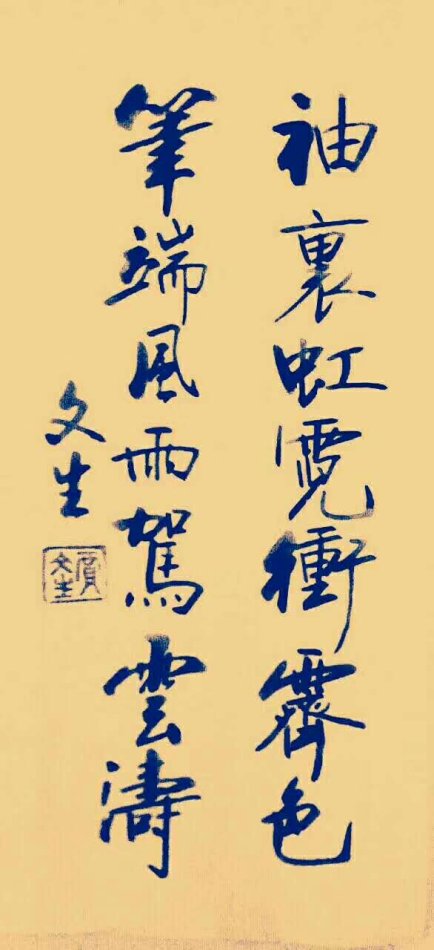 袖裏虹霓衝霽色
筆端風雨駕雲濤
文生